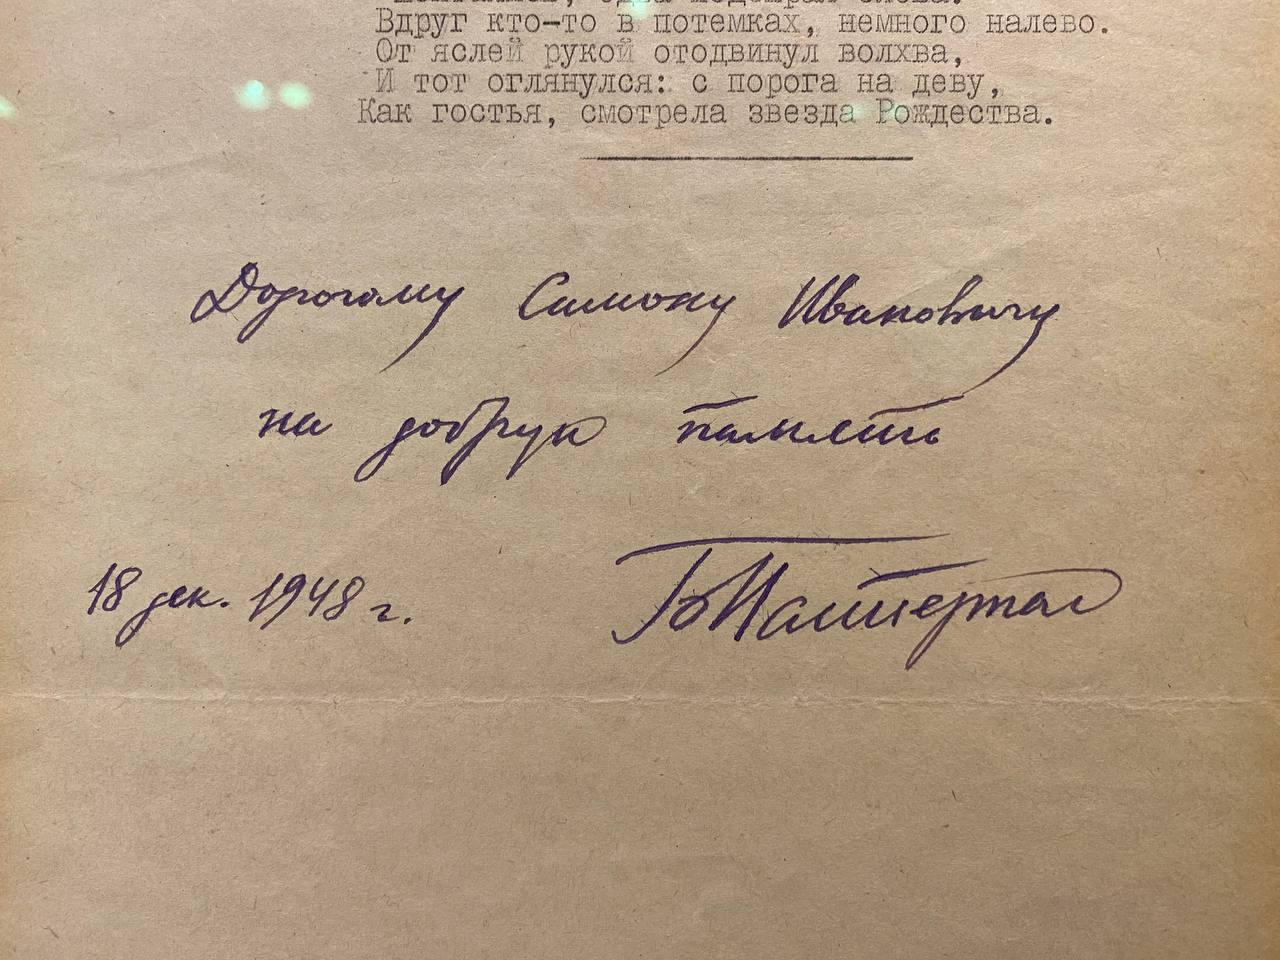 Шептались, едва подбирая слова.
Вдруг кто-то в потемках, немного налево.
От яслей рукой отодвинул волхва,
И тот оглянулся: с порога на деву,
Как гостья, смотрела звезда Рождества.
Дорогому Симону Ивановичу
на добрую память
18 дек. 1948 г.
Б Пастернак